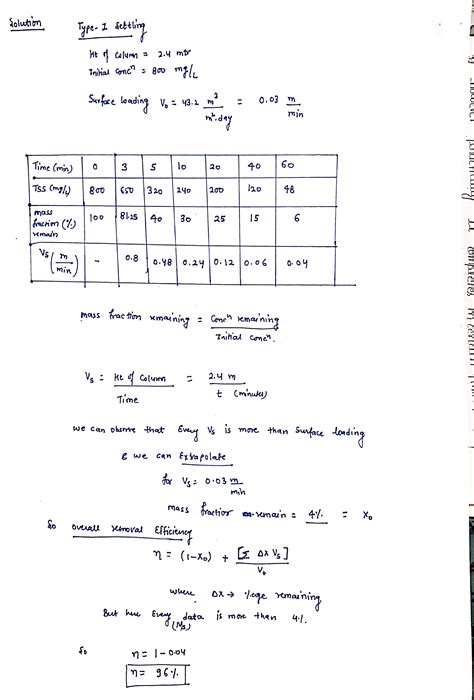 Solution
Type-I Settling
Ht of column = 2.4 mtr
Initial concⁿ = 800 mg/L
Surface loading V₀ = 43.2 m³/m².day = 0.03 m/min
Time (min) 0 3 5 10 20 40 60
TSS (mg/L) 800 650 320 240 200 120 48
mass fraction (%) remain 100 81.25 40 30 25 15 6
Vs (m/min) - 0.8 0.48 0.24 0.12 0.06 0.04
mass fraction remaining = Concⁿ remaining / Initial concⁿ.
Vs = Ht of Column / Time = 2.4 m / t (minutes)
we can observe that Every Vs is more than Surface loading
& we can Extrapolate
for Vs = 0.03 m/min
mass fraction remain = 4% = X₀
So overall removal Efficiency
η = (1-X₀) + [Σ ΔX Vs] / V₀
where ΔX → %age remaining
But here Every data (Vs) is more than 4%.
So η = 1 - 0.04
η = 96%